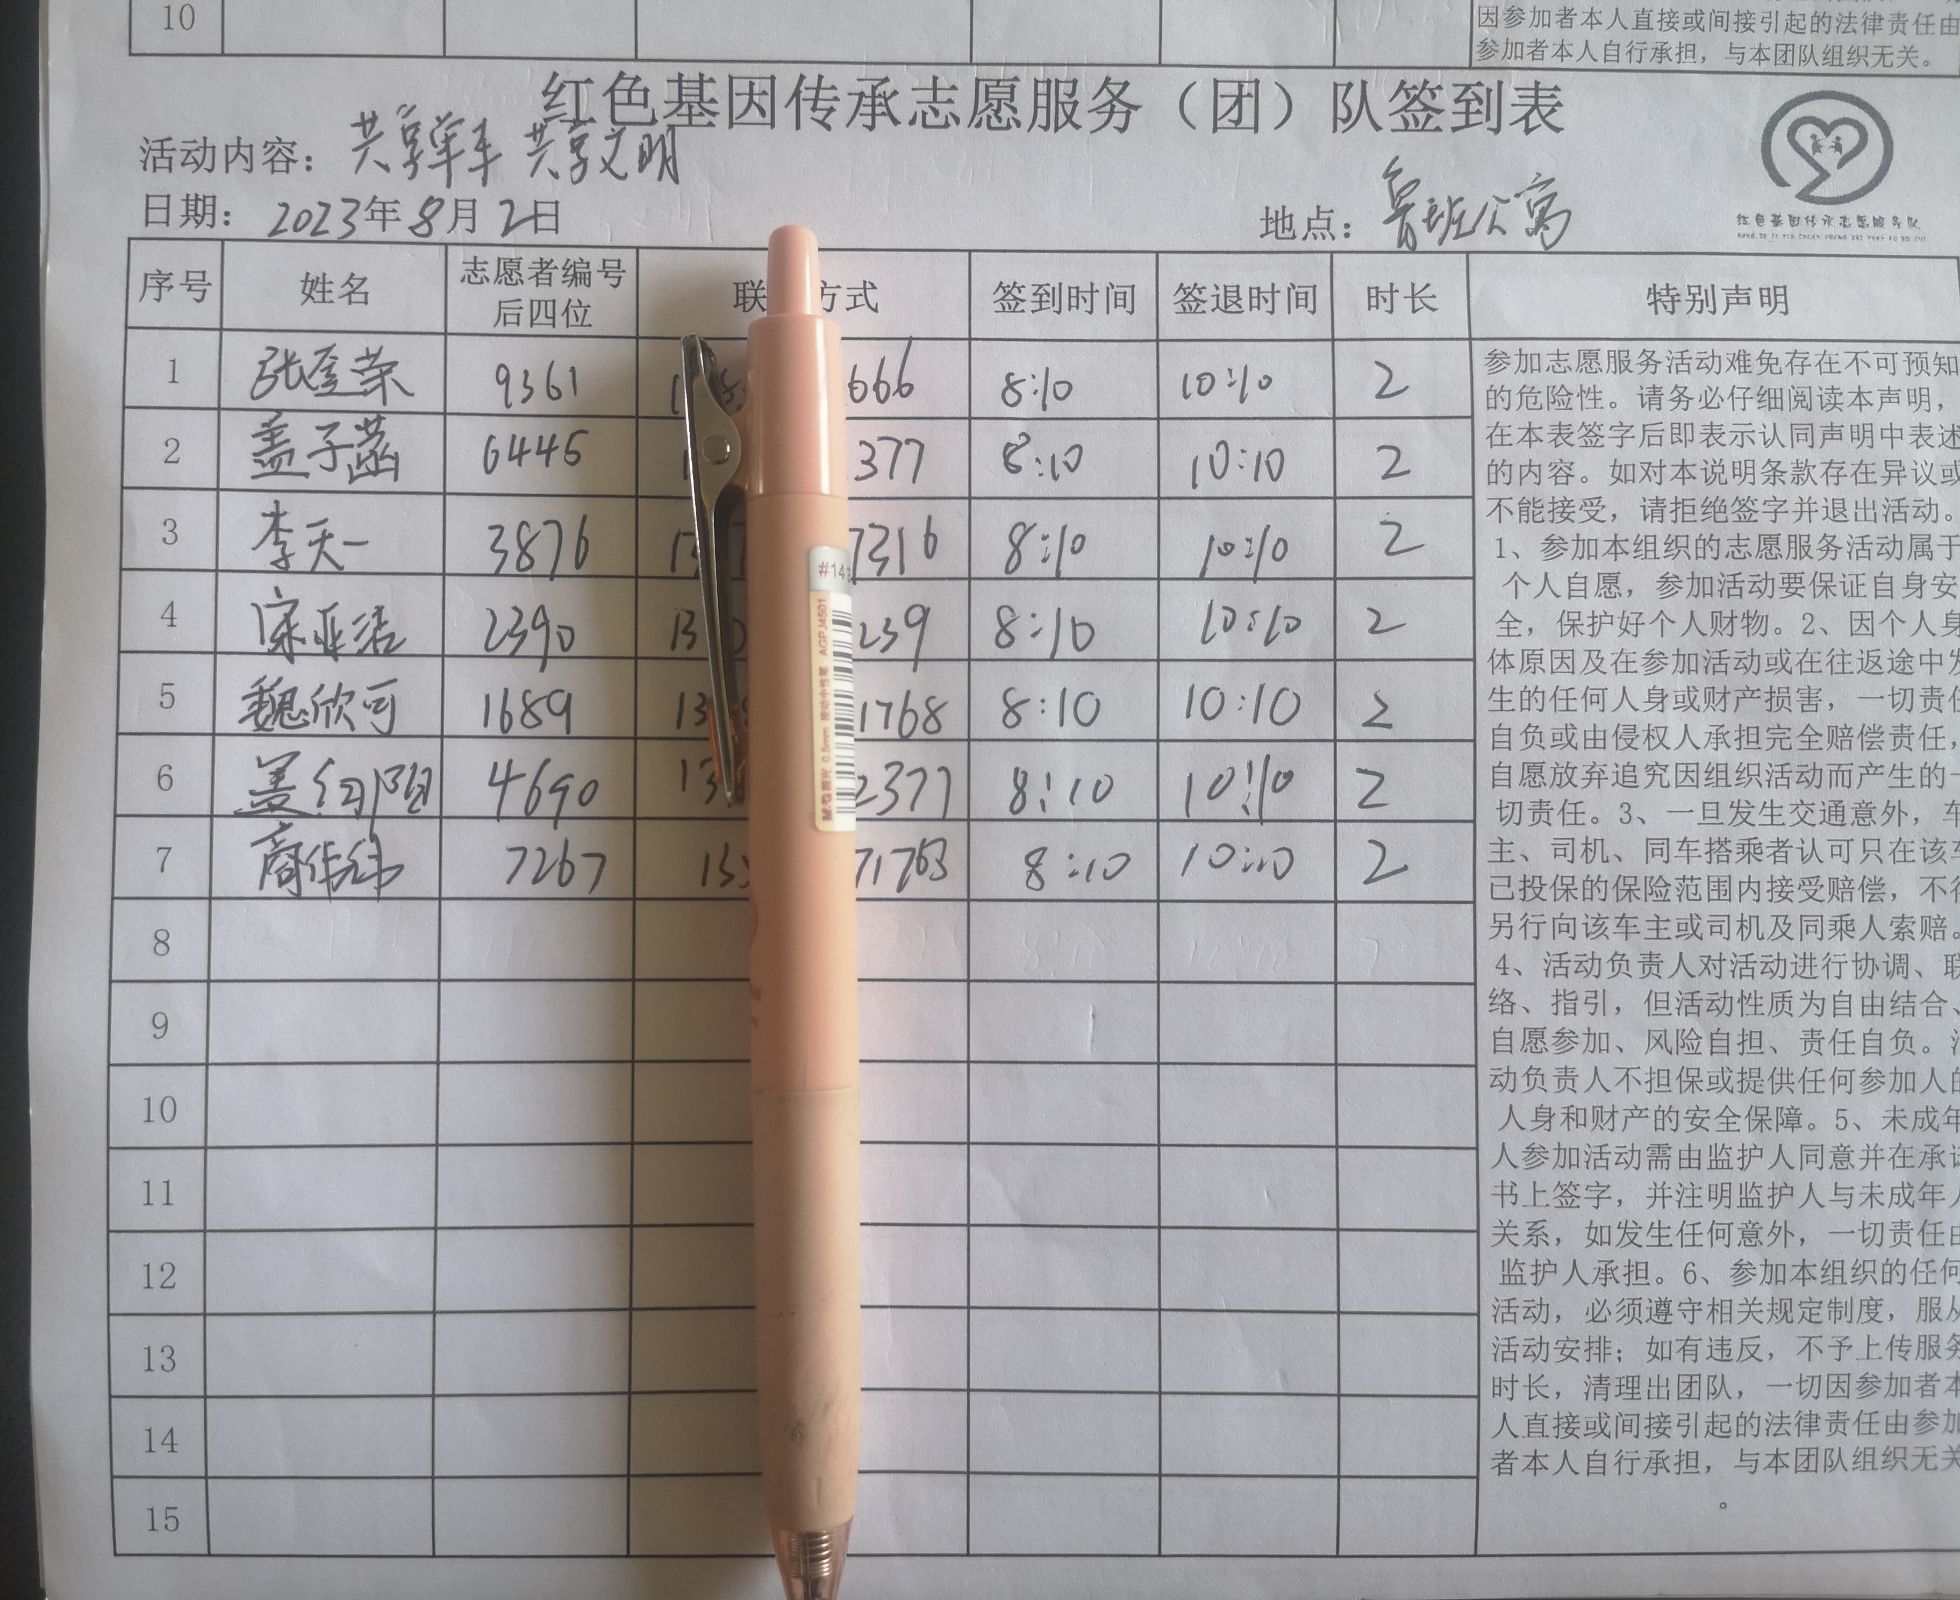 10
因参加者本人直接或间接引起的法律责任由
参加者本人自行承担，与本团队组织无关。
红色基因传承志愿服务（团）队签到表
活动内容：共享单车 共享文明
日期：2023年8月2日
地点：鲁班公寓
红色基因传承志愿服务队
序号 姓名 志愿者编号后四位 联 方式 签到时间 签退时间 时长 特别声明
1 9361 666 8:10 10:10 2
2 盖子菡 6445 377 8:10 10:10 2
3 李天一 3876 13 7316 8:10 10:10 2
4 2390 13 239 8:10 10:10 2
5 魏欣可 1689 13 1768 8:10 10:10 2
6 4690 13 2377 8:10 10:10 2
7 7267 13 71763 8:10 10:10 2
8
9
10
11
12
13
14
15
参加志愿服务活动难免存在不可预知
的危险性。请务必仔细阅读本声明，
在本表签字后即表示认同声明中表述
的内容。如对本说明条款存在异议或
不能接受，请拒绝签字并退出活动。
1、参加本组织的志愿服务活动属于
个人自愿，参加活动要保证自身安
全，保护好个人财物。2、因个人身
体原因及在参加活动或在往返途中发
生的任何人身或财产损害，一切责任
自负或由侵权人承担完全赔偿责任，
自愿放弃追究因组织活动而产生的一
切责任。3、一旦发生交通意外，车
主、司机、同车搭乘者认可只在该车
已投保的保险范围内接受赔偿，不得
另行向该车主或司机及同乘人索赔。
4、活动负责人对活动进行协调、联
络、指引，但活动性质为自由结合、
自愿参加、风险自担、责任自负。活
动负责人不担保或提供任何参加人的
人身和财产的安全保障。5、未成年
人参加活动需由监护人同意并在承诺
书上签字，并注明监护人与未成年人
关系，如发生任何意外，一切责任由
监护人承担。6、参加本组织的任何
活动，必须遵守相关规定制度，服从
活动安排；如有违反，不予上传服务
时长，清理出团队，一切因参加者本
人直接或间接引起的法律责任由参加
者本人自行承担，与本团队组织无关
。
#14
M&G晨光 0.5mm 按动中性笔 AGPJ4501